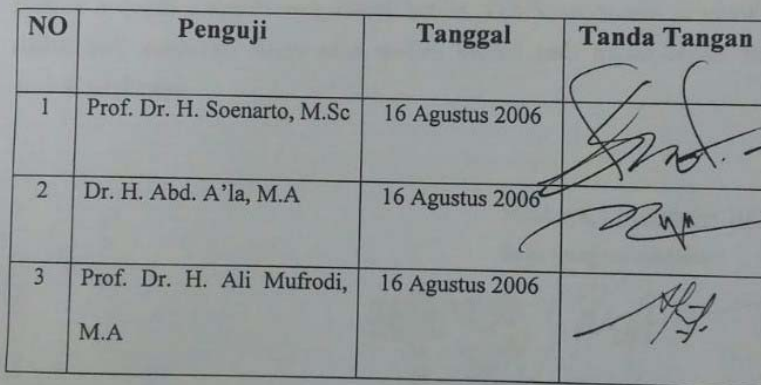 NO Penguji Tanggal Tanda Tangan
1 Prof. Dr. H. Soenarto, M.Sc 16 Agustus 2006
2 Dr. H. Abd. A'la, M.A 16 Agustus 2006
3 Prof. Dr. H. Ali Mufrodi, 16 Agustus 2006
M.A